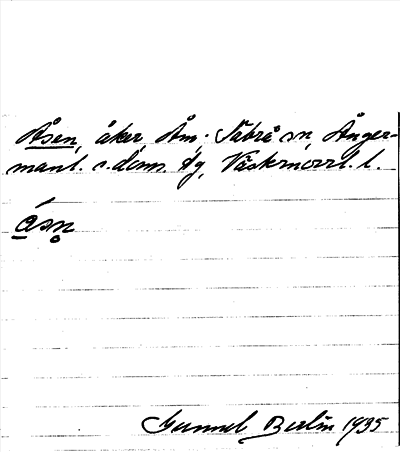 Åsen, åker Åm. Säbrå sn, Ånger-
manl. s. doms. tg, Västernorrl. l.
åsn̥
Gunnel Berlin 1935